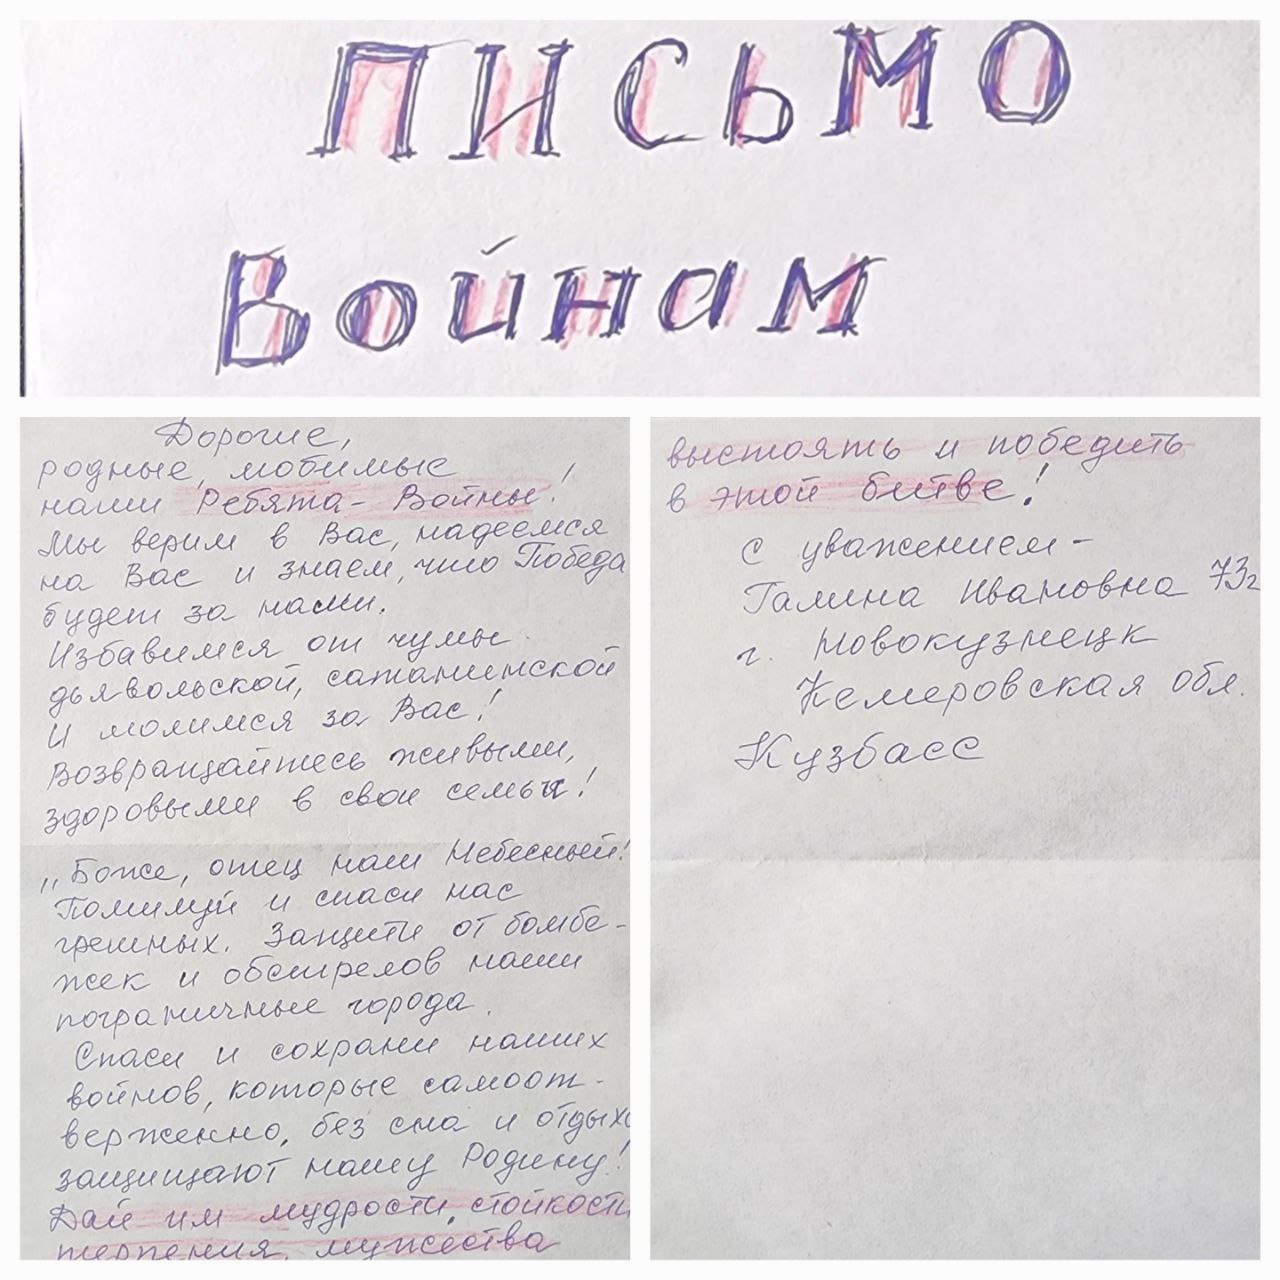 ПИСЬМО
Войнам
Дорогие,
родные, любимые
наши Ребята - Войны!
Мы верим в Вас, надеемся
на Вас и знаем, что Победа
будет за нами.
Избавимся от чумы
дьявольской, сатанинской
И молимся за Вас!
Возвращайтесь живыми,
здоровыми в свои семьи!
„Боже, отец наш Небесный!
Помилуй и спаси нас
грешных. Защити от бомбе-
жек и обстрелов наши
пограничные города.
Спаси и сохрани наших
войнов, которые самоот-
верженно, без сна и отдыха
защищают нашу Родину!
Дай им мудрости, стойкости
терпения, мужества
выстоять и победить
в этой битве!
С уважением -
Галина Ивановна 73г
г. Новокузнецк
Кемеровская обл.
Кузбасс